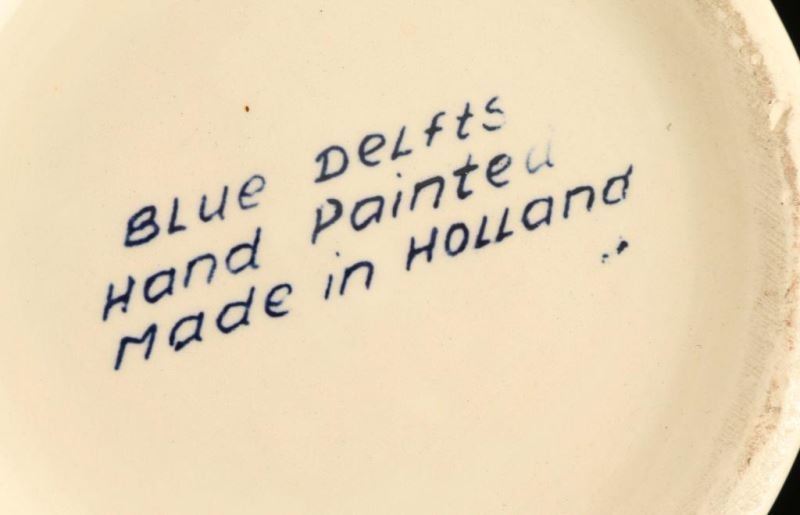 BLUE DELftS
Hand Painted
Made in HOLLand